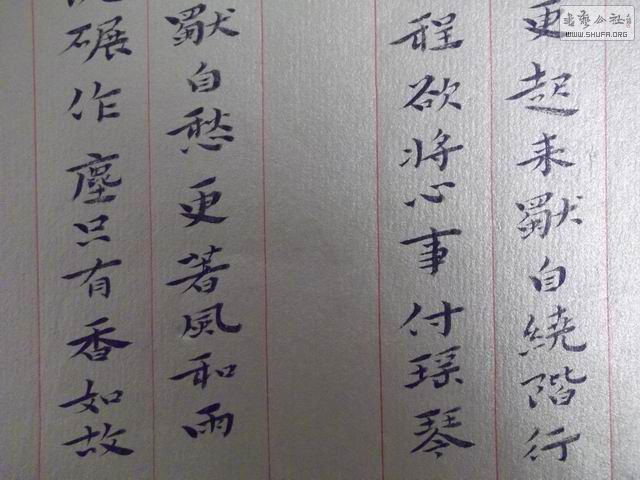 更起来獨自繞階行
程欲将心事付瑶琴
獨自愁更著風和雨
碾作塵只有香如故
書藝公社
WWW.SHUFA.ORG